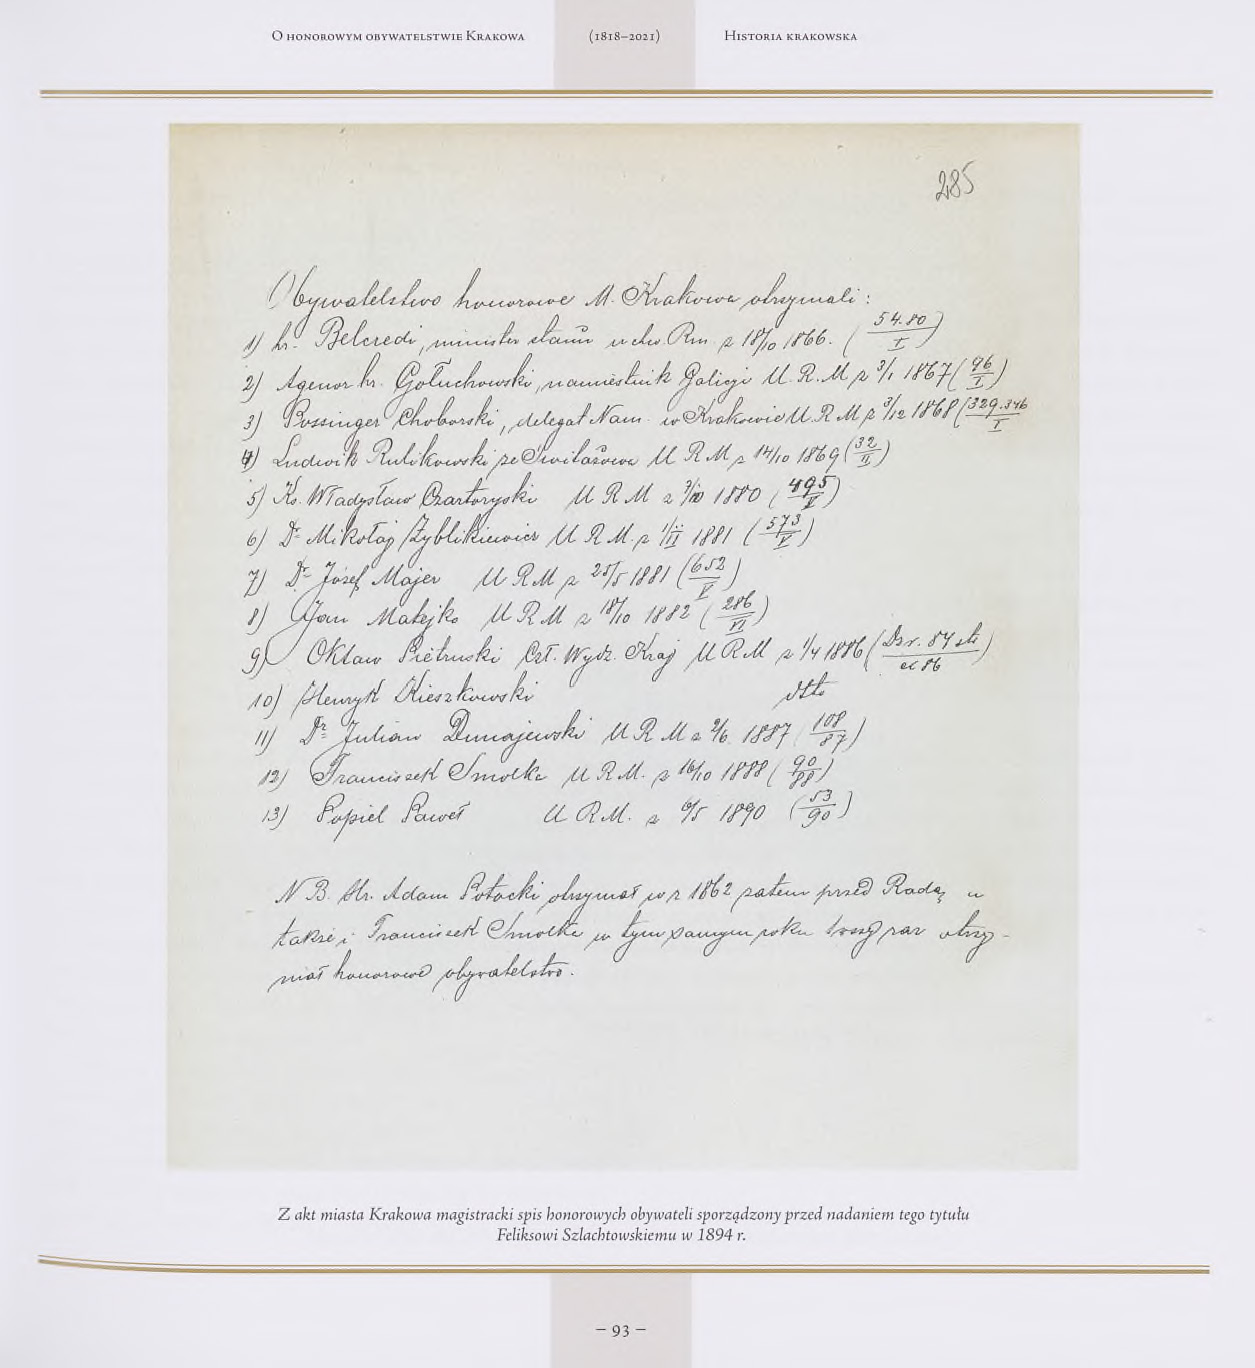 O honorowym obywatelstwie Krakowa (1818–2021) Historia krakowska
285
Obywatelstwo honorowe M. Krakowa otrzymali :
1) hr. Belcredi, minister stanu uchw. Rm. z 18/10 1866. ( 54.80/I )
2) Agenor hr. Gołuchowski, namiestnik Galicyi U. R. M z 3/1 1867 ( 96/I )
3) Possinger Choborski, delegat Nam. w Krakowie U. R M z 3/12 1868 ( 329.346/I
4) Ludwik Rulikowski ze Świtażowa U R M z 14/10 1869 ( 32/II )
5) Ks. Władysław Czartoryski U R M z 7/10 1880 ( 495/V )
6) Dr Mikołaj Zyblikiewicz U R M. z 1881 ( 573/V )
7) Dr Józef Majer U R M z 25/5 1881 ( 652/V )
8) Jan Matejko U R M z 18/10 1882 ( 286/VI )
9) Oktaw Pietruski Czł. Wydz. Kraj U R M z 1/4 1886 (
10) Henryk Kieszkowski dtto
11) Dr Julian Dunajewski U R M z 2/6 1887 ( 108/87 )
12) Franciszek Smolka U R M. z 16/10 1888 ( 90/88 )
13) Popiel Paweł U R M. z 6/5 1890 ( 53/90 )
N B. Hr. Adam Potocki otrzymał w r 1862 zatem przed Radą, a
także i Franciszek Smolka w tym samym roku raz otrzy-
mał honorowe obywatelstwo.
Z akt miasta Krakowa magistracki spis honorowych obywateli sporządzony przed nadaniem tego tytułu
Feliksowi Szlachtowskiemu w 1894 r.
– 93 –